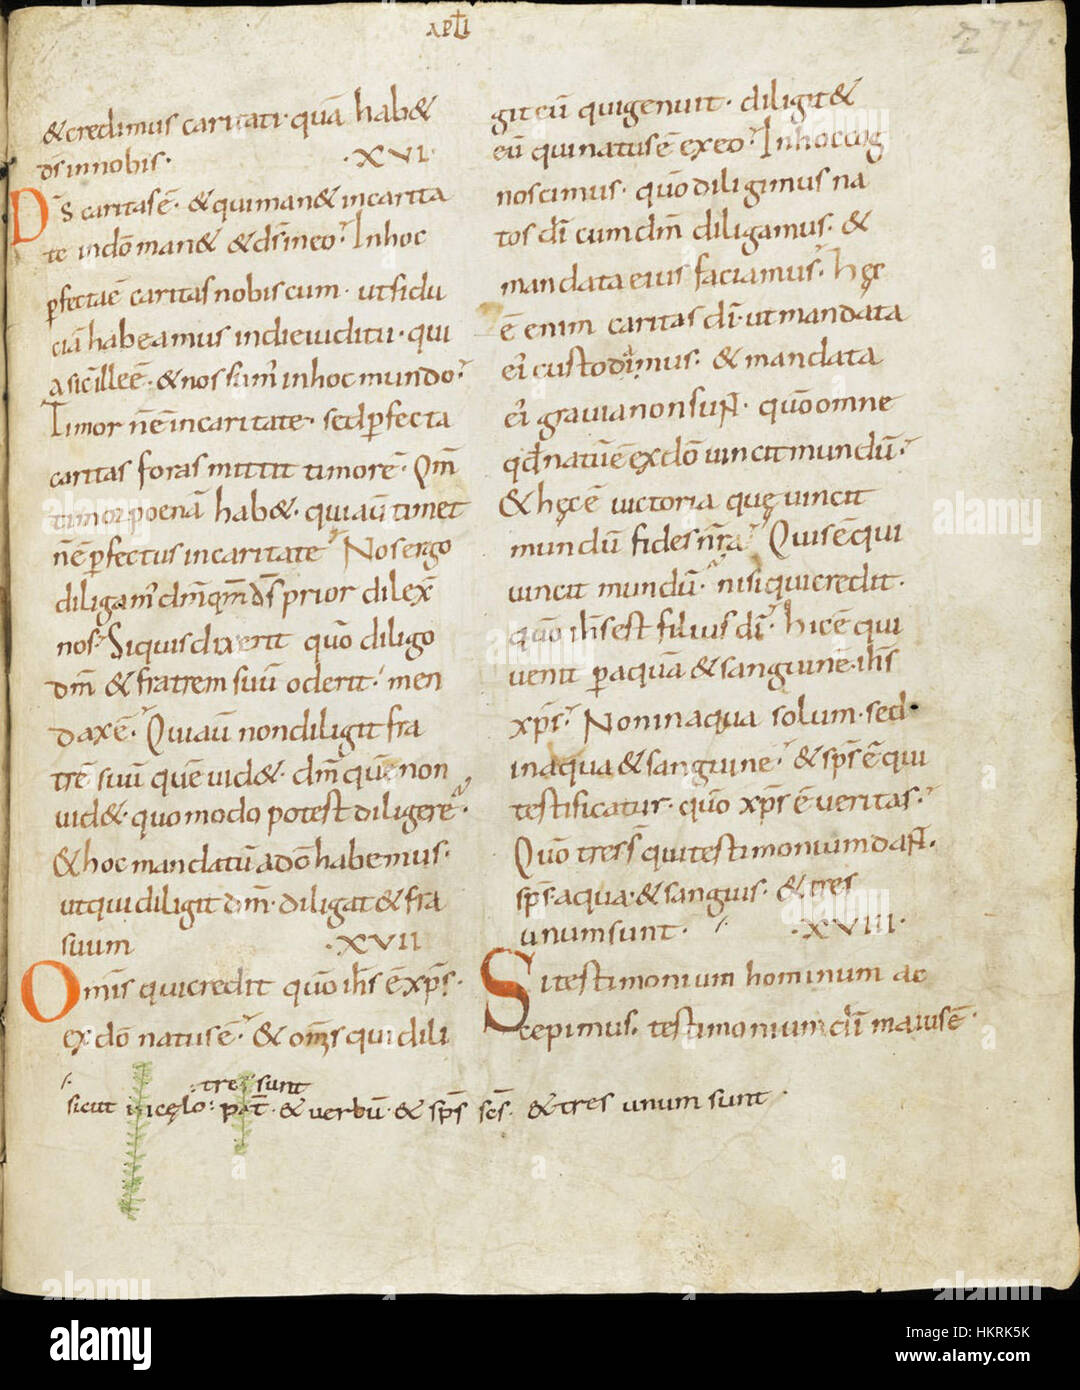 APŁI
277
&credimus caritati· quā hab&
ds innobis· ·XVI·
Ds̄ caritas ē· & qui man& in carita
te in dō man& & ds̄ in eo· In hoc
ꝑfecta ē caritas nobiscum· ut fidu
ciā habeamus in die iudicii· qui
a sic ille ē· & nos sumꝰ in hoc mundo·
Timor nē in caritate· sed ꝑfecta
caritas foras mittit timorē· Qm̄
timor poenā hab&· qui aū timet
nē ꝑfectus in caritate Nos ergo
diligamꝰ dm̄ qm̄ ds̄ prior dilex̄
nos· Si quis dixerit quō diligo
dm̄ & fratrem suū oderit· men
dax ē· Qui aū non diligit fra
trē suū quē uid&· dm̄ quē non
uid&· quomodo potest diligere·
& hoc mandatū a dō habemus·
ut qui diligit dm̄· diligat & fra
suum ·XVII
Omīs qui credit quō ih̄s ē xp̄s·
ex dō natus ē· & om̄s qui dili
git eū qui genuit· diligit &
eū qui natus ē ex eo· In hoc cog
noscimus· quō diligimus na
tos dī cum dm̄ diligamus· &
mandata eius faciamus· hęc
ē enim caritas dī· ut mandata
eiꝰ custodimus· & mandata
eiꝰ grauia non sunt· quō omne
qd̄ natū ē ex dō uincit mundū·
& hęc ē uictoria quę uincit
mundū fides nr̄a Quis ē qui
uincit mundū· nisi qui credit·
quō ih̄s est filius dī· hic ē qui
uenit ꝑ aquā & sanguinē· ih̄s
xp̄s· Non in aqua solum· sed·
in aqua & sanguine· & sp̄s ē qui
testificatur· quō xp̄s ē ueritas·
Quō tres s̄ qui testimonium dant·
sp̄s· aqua· & sanguis· & tres
unum sunt· ·XVIII·
Si testimonium hominum ac
cepimus· testimonium dī maius ē·
tres sunt
sicut in cęlo: pat̄· & verbū· & sp̄s sc̄s· & tres unum sunt·
alamy
Image ID: HKRK5K
www.alamy.com